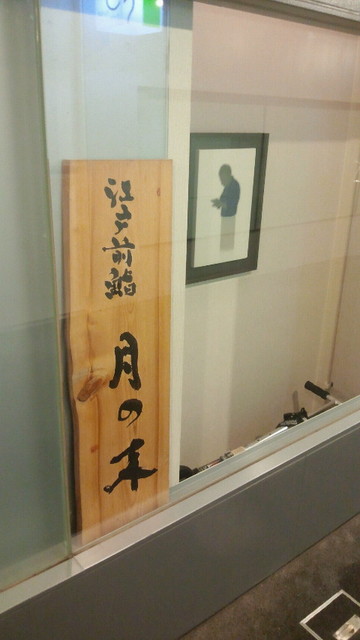 江戸前鮨
月の本